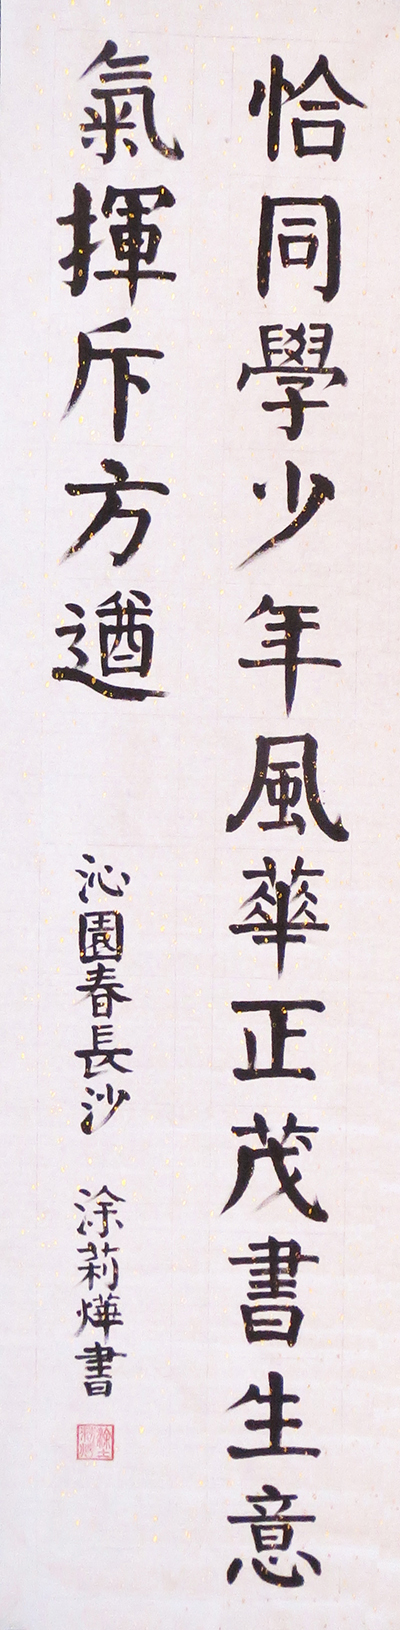 恰同學少年風華正茂書生意
氣揮斥方遒
沁園春長沙 涂莉燁書